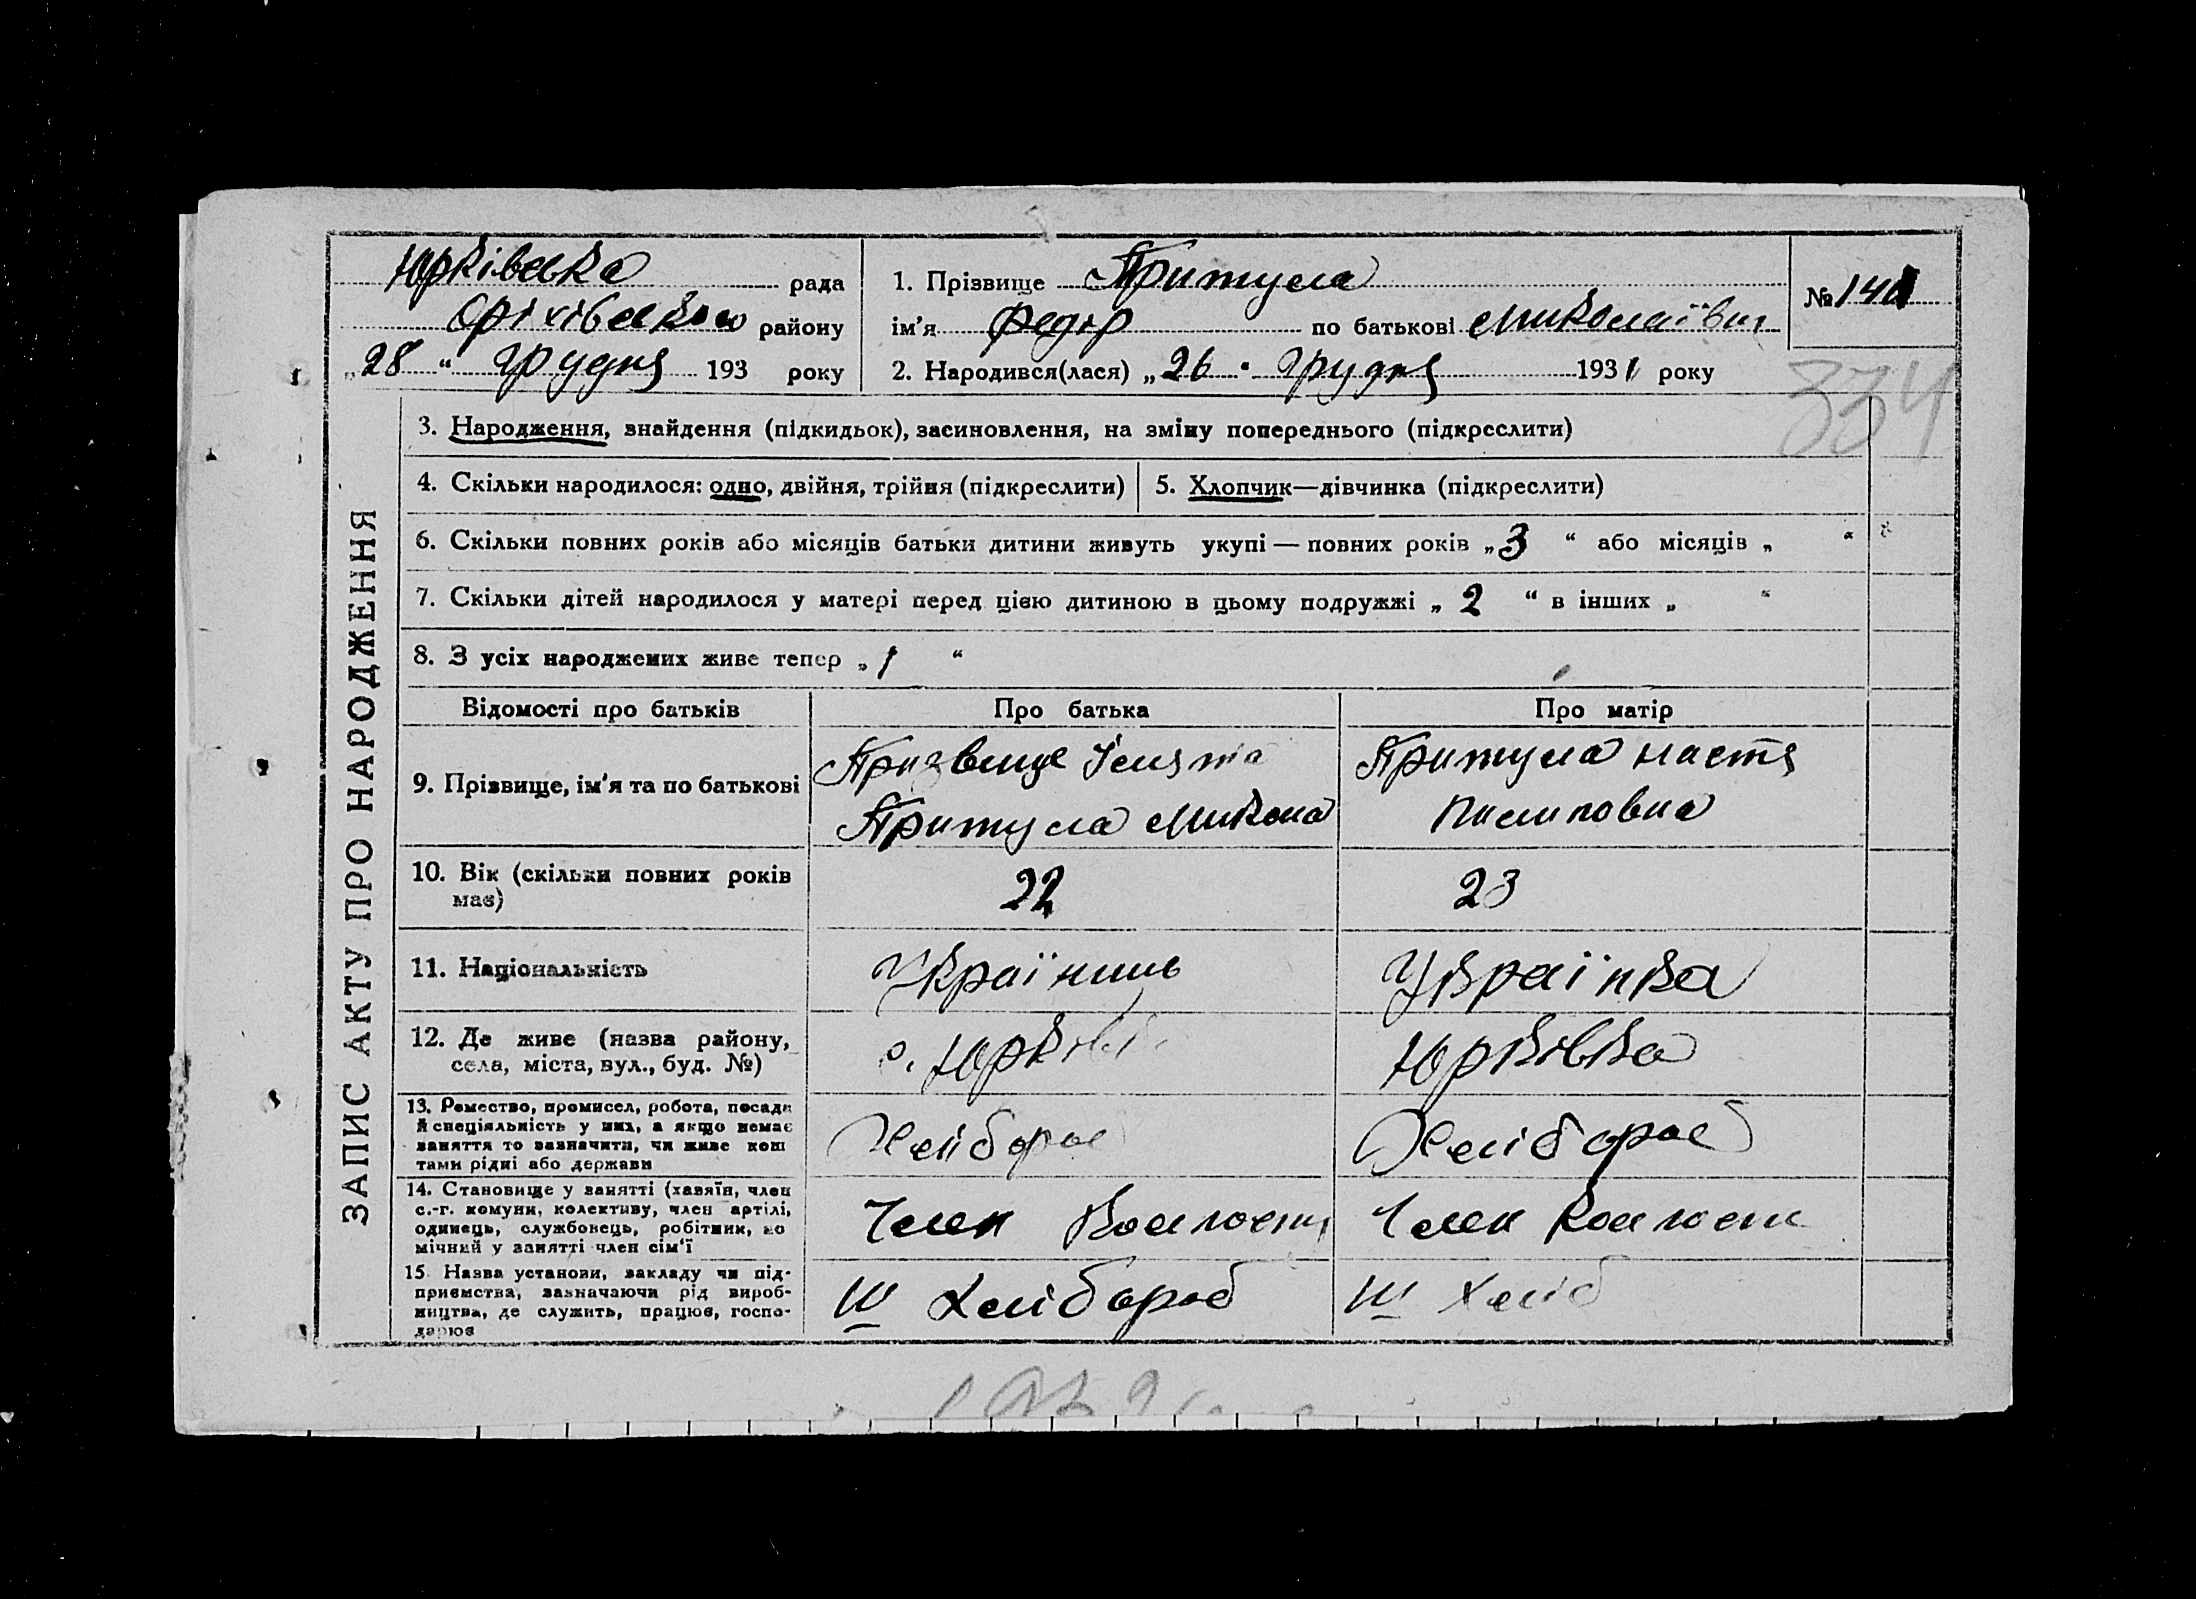 Юрківська рада
Оріхівського району
„28“ грудня 193 року
1. Прізвище Притула
ім'я Федір по батькові Миколаївич
2. Народився(лася) „26“ грудня 1931 року
№ 140
334
ЗАПИС АКТУ ПРО НАРОДЖЕННЯ
3. Народження, знайдення (підкидьок), засиновлення, на зміну попереднього (підкреслити)
4. Скільки народилося: одно, двійня, трійня (підкреслити)
5. Хлопчик—дівчинка (підкреслити)
6. Скільки повних років або місяців батьки дитини живуть укупі — повних років „3“ або місяців „ “
7. Скільки дітей народилося у матері перед цією дитиною в цьому подружжі „2“ в інших „ “
8. З усіх народжених живе тепер „1“
Відомості про батьків Про батька Про матір
9. Прізвище, ім'я та по батькові
Призвище
Притула Микола
Притула Настя
Пилиповна
10. Вік (скільки повних років
має)
22 23
11. Національність Українець Українка
12. Де живе (назва району,
села, міста, вул., буд. №)
с. Юрків Юрківка
13. Ремество, промисел, робота, посада
й спеціяльність у них, а якщо немає
заняття то зазначити, чи живе кош
тами рідні або держави
Хлібороб Хлібороб
14. Становище у занятті (хазяїн, член
с.-г. комуни, колективу, член артілі,
одинець, службовець, робітник, по
мічний у занятті член сім'ї
Член Член
15. Назва установи, закладу чи під-
приємства, зазначаючи рід вироб-
ництва, де служить, працює, госпо-
дарює
Ш Хлібороб Ш Хліб